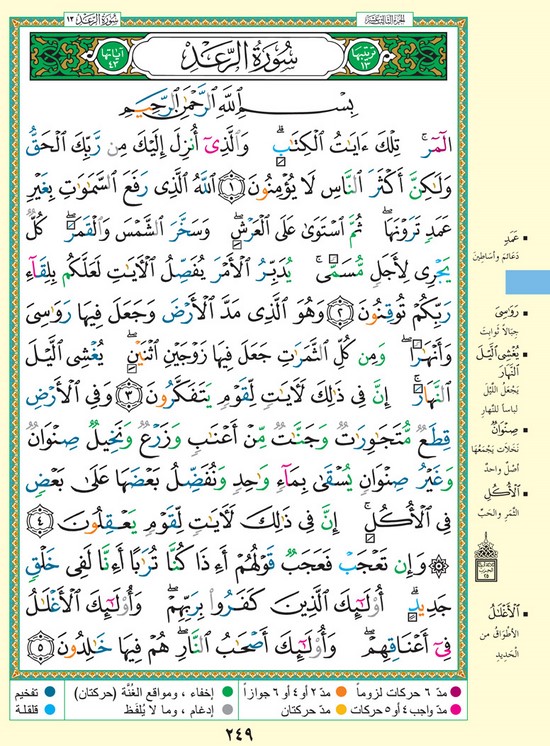 سُورَةُ الرَّعْدِ ١٣
الجزء الثالث عشر
ترتيبها ١٣
سُورَةُ الرَّعْدِ
آياتها ٤٣
بِسْمِ اللَّهِ الرَّحْمَٰنِ الرَّحِيمِ
الٓمٓر ۚ تِلْكَ ءَايَٰتُ الْكِتَٰبِ ۗ وَالَّذِىٓ أُنزِلَ إِلَيْكَ مِن رَّبِّكَ الْحَقُّ
وَلَٰكِنَّ أَكْثَرَ النَّاسِ لَا يُؤْمِنُونَ ١ اللَّهُ الَّذِى رَفَعَ السَّمَٰوَٰتِ بِغَيْرِ
عَمَدٍ تَرَوْنَهَا ۖ ثُمَّ اسْتَوَىٰ عَلَى الْعَرْشِ ۖ وَسَخَّرَ الشَّمْسَ وَالْقَمَرَ ۖ كُلٌّ
يَجْرِى لِأَجَلٍ مُّسَمًّى ۚ يُدَبِّرُ الْأَمْرَ يُفَصِّلُ الْءَايَٰتِ لَعَلَّكُم بِلِقَآءِ
رَبِّكُمْ تُوقِنُونَ ٢ وَهُوَ الَّذِى مَدَّ الْأَرْضَ وَجَعَلَ فِيهَا رَوَٰسِىَ
وَأَنْهَٰرًا ۖ وَمِن كُلِّ الثَّمَرَٰتِ جَعَلَ فِيهَا زَوْجَيْنِ اثْنَيْنِ ۖ يُغْشِى الَّيْلَ
النَّهَارَ ۚ إِنَّ فِى ذَٰلِكَ لَءَايَٰتٍ لِّقَوْمٍ يَتَفَكَّرُونَ ٣ وَفِى الْأَرْضِ
قِطَعٌ مُّتَجَٰوِرَٰتٌ وَجَنَّٰتٌ مِّنْ أَعْنَٰبٍ وَزَرْعٌ وَنَخِيلٌ صِنْوَانٌ
وَغَيْرُ صِنْوَانٍ يُسْقَىٰ بِمَآءٍ وَٰحِدٍ وَنُفَضِّلُ بَعْضَهَا عَلَىٰ بَعْضٍ
فِى الْأُكُلِ ۚ إِنَّ فِى ذَٰلِكَ لَءَايَٰتٍ لِّقَوْمٍ يَعْقِلُونَ ٤
۞ وَإِن تَعْجَبْ فَعَجَبٌ قَوْلُهُمْ أَءِذَا كُنَّا تُرَٰبًا أَءِنَّا لَفِى خَلْقٍ
جَدِيدٍ ۗ أُو۟لَٰٓئِكَ الَّذِينَ كَفَرُوا۟ بِرَبِّهِمْ ۖ وَأُو۟لَٰٓئِكَ الْأَغْلَٰلُ
فِىٓ أَعْنَاقِهِمْ ۖ وَأُو۟لَٰٓئِكَ أَصْحَٰبُ النَّارِ ۖ هُمْ فِيهَا خَٰلِدُونَ ٥
عَمَدٍ
دَعَائِمَ وأَسَاطِينَ
رَوَٰسِىَ
جِبَالًا ثَوابِتَ
يُغْشِى الَّيْلَ
النَّهَارَ
يَجْعَلُ اللَّيْلَ
لباساً للنَّهارِ
صِنْوَانٌ
نَخَلات يَجْمَعُهَا
أصْلٌ واحدٌ
الْأُكُلِ
الثَّمَرِ والحَبِّ
الْأَغْلَٰلُ
الأطْوَاقُ من
الحَدِيدِ
مدّ ٦ حركات لزوماً
مدّ ٢ أو ٤ أو ٦ جوازاً
إخفاء، ومواقع الغُنَّة (حركتان)
تفخيم
مدّ واجب ٤ أو ٥ حركات
مدّ حركتان
إدغام، وما لا يُلفَظ
قلقلة
٢٤٩